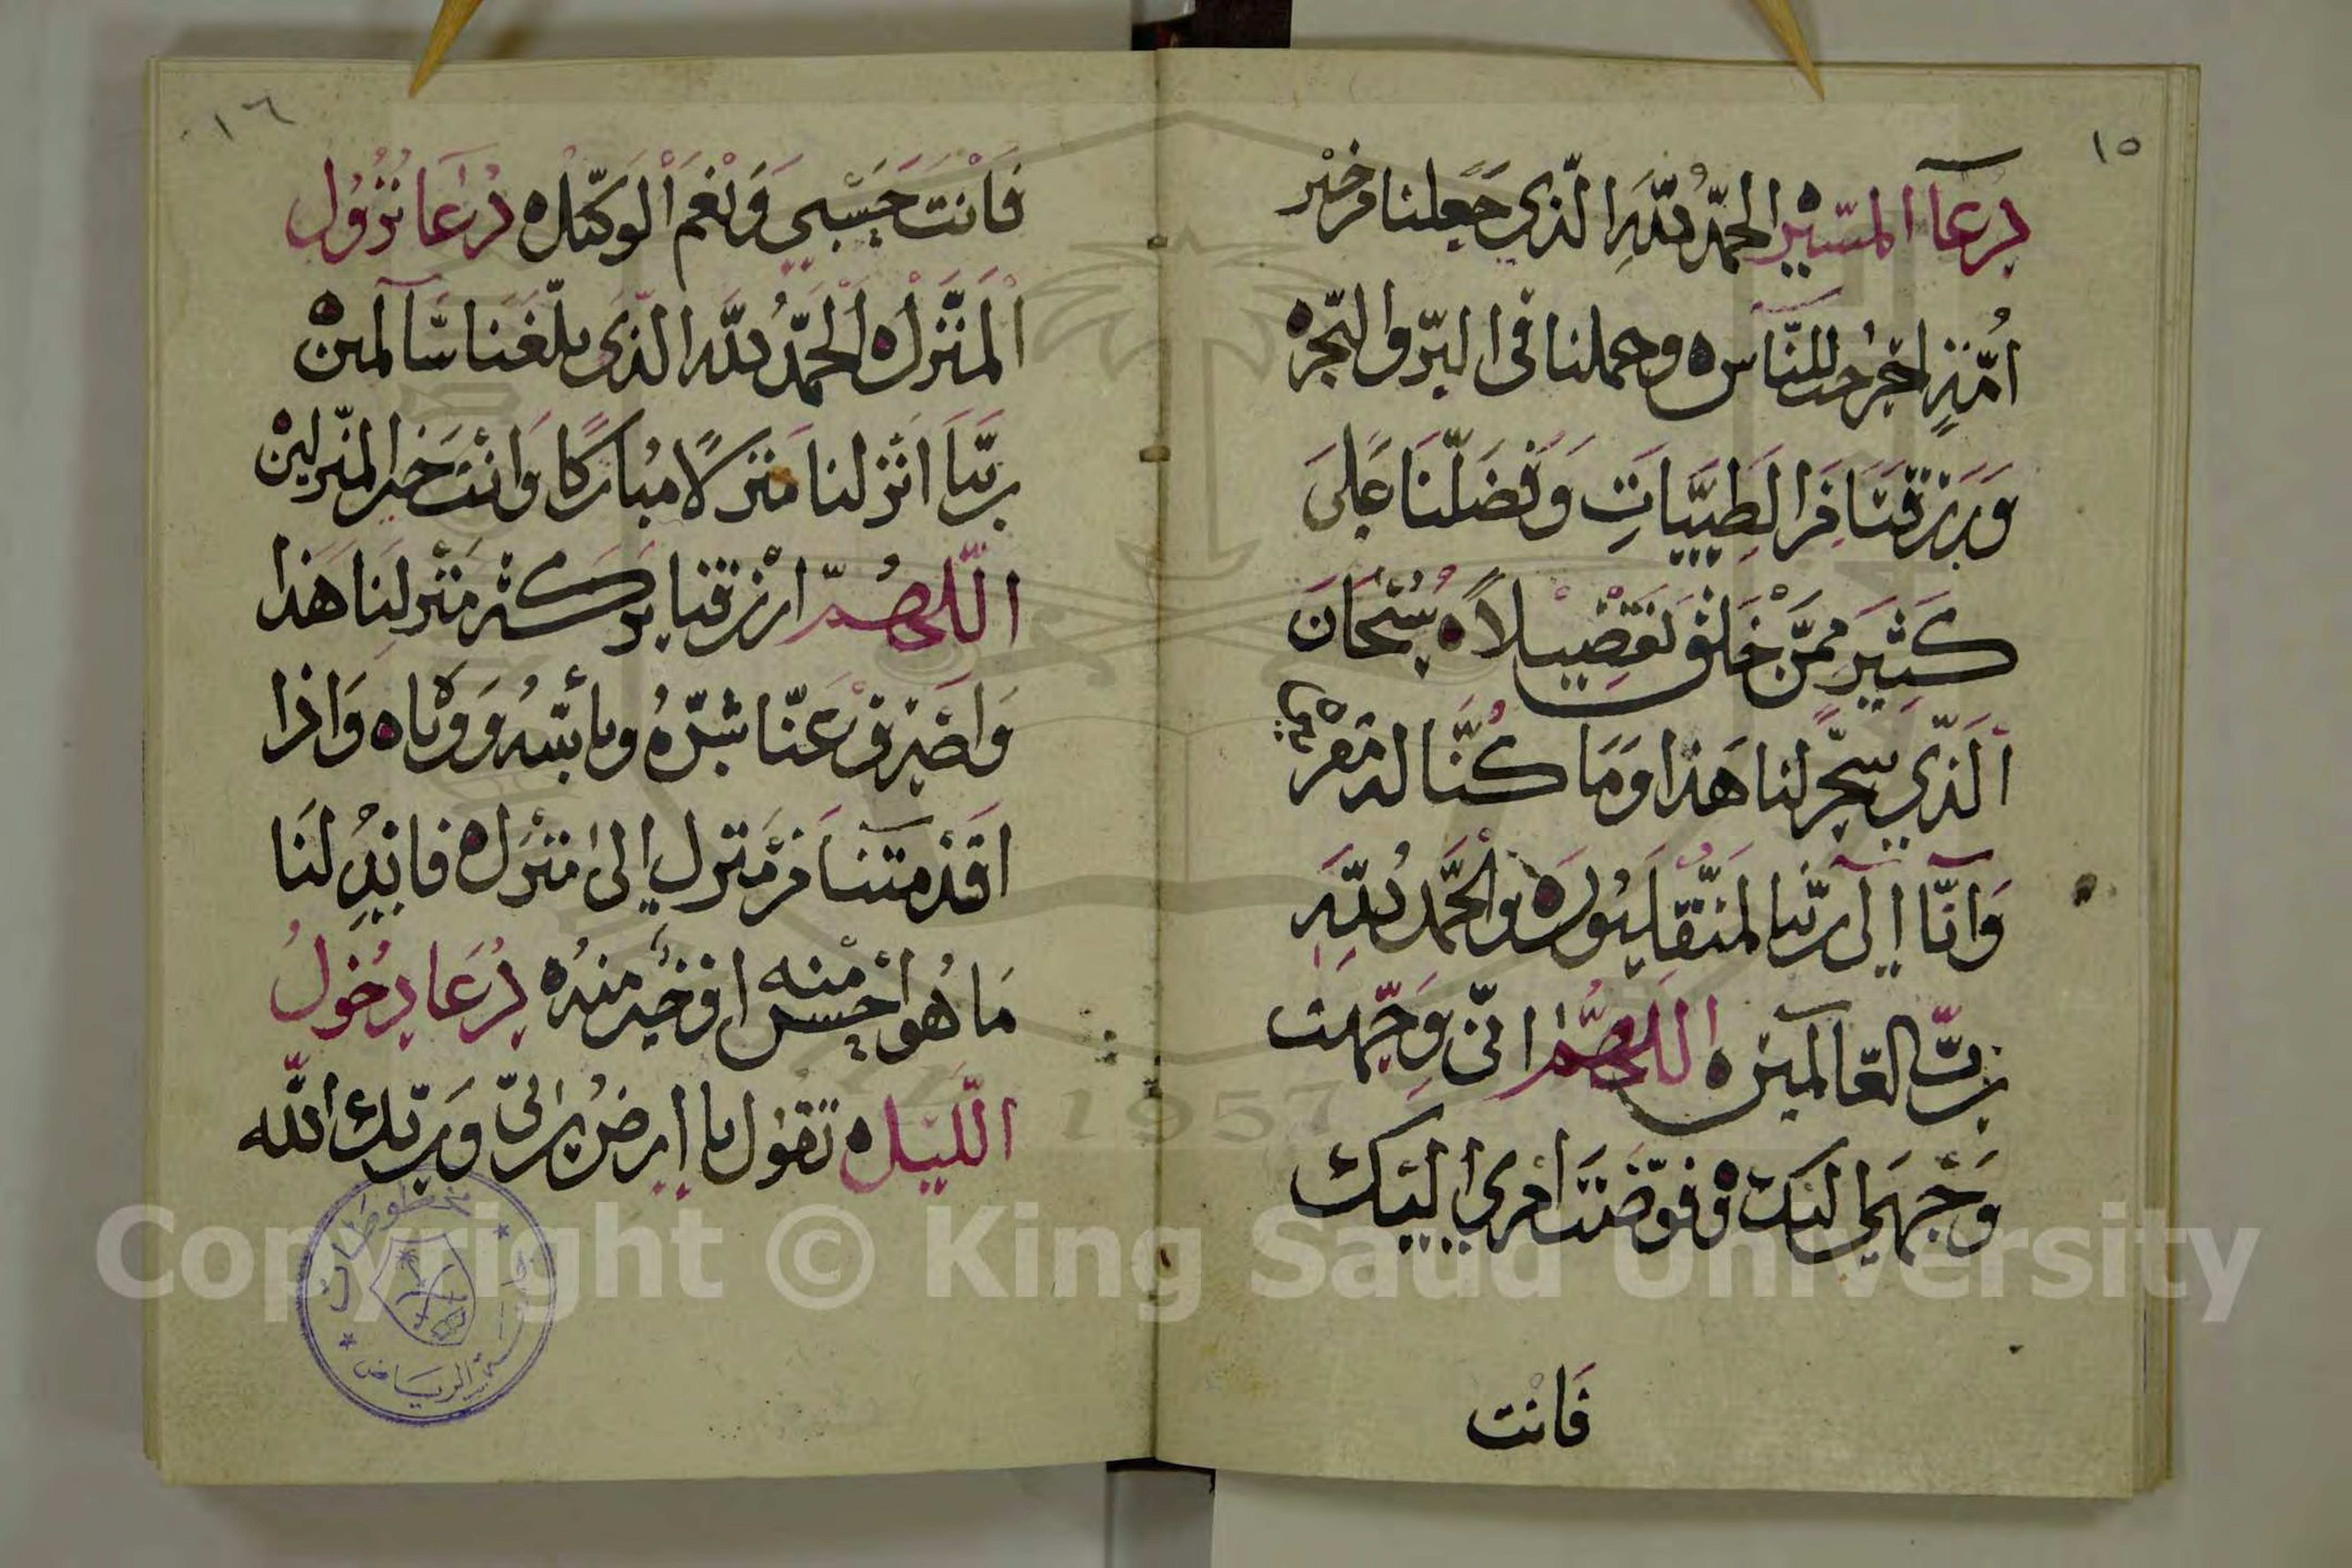 ١٥
دعآ المسير الحمد لله الذي جعلنا من خير
أمة اخرجت للناس ه وحملنا في البر والبحر ه
ورزقنا من الطيبات وفضلنا على
كثير ممن خلق تفضيلا ه سبحان
الذي سخر لنا هذا وما كنا له مقرنين ه
وانا الى ربنا لمنقلبون ه والحمد لله
رب العالمين ه اللهم اني وجهت
وجهي اليك ه وفوضت امري اليك
فانت
١٦
فانت حسبي ونعم الوكيل ه دعا نزول
المنزل ه الحمد لله الذي بلغنا سالمين ه
ربنا انزلنا منزلا مباركا وانت خير المنزلين
اللهم ارزقنا بركة منزلنا هذا
واصرف عنا شره وبأسه ووباه ه واذا
اقدمتنا من منزل الى منزل ه فابدلنا
ما هو احسن منه او خير منه ه دعا دخول
الليل ه تقول يا ارض ربي وربك الله
مخطوطات
جامعة الرياض
Copyright © King Saud University
1957